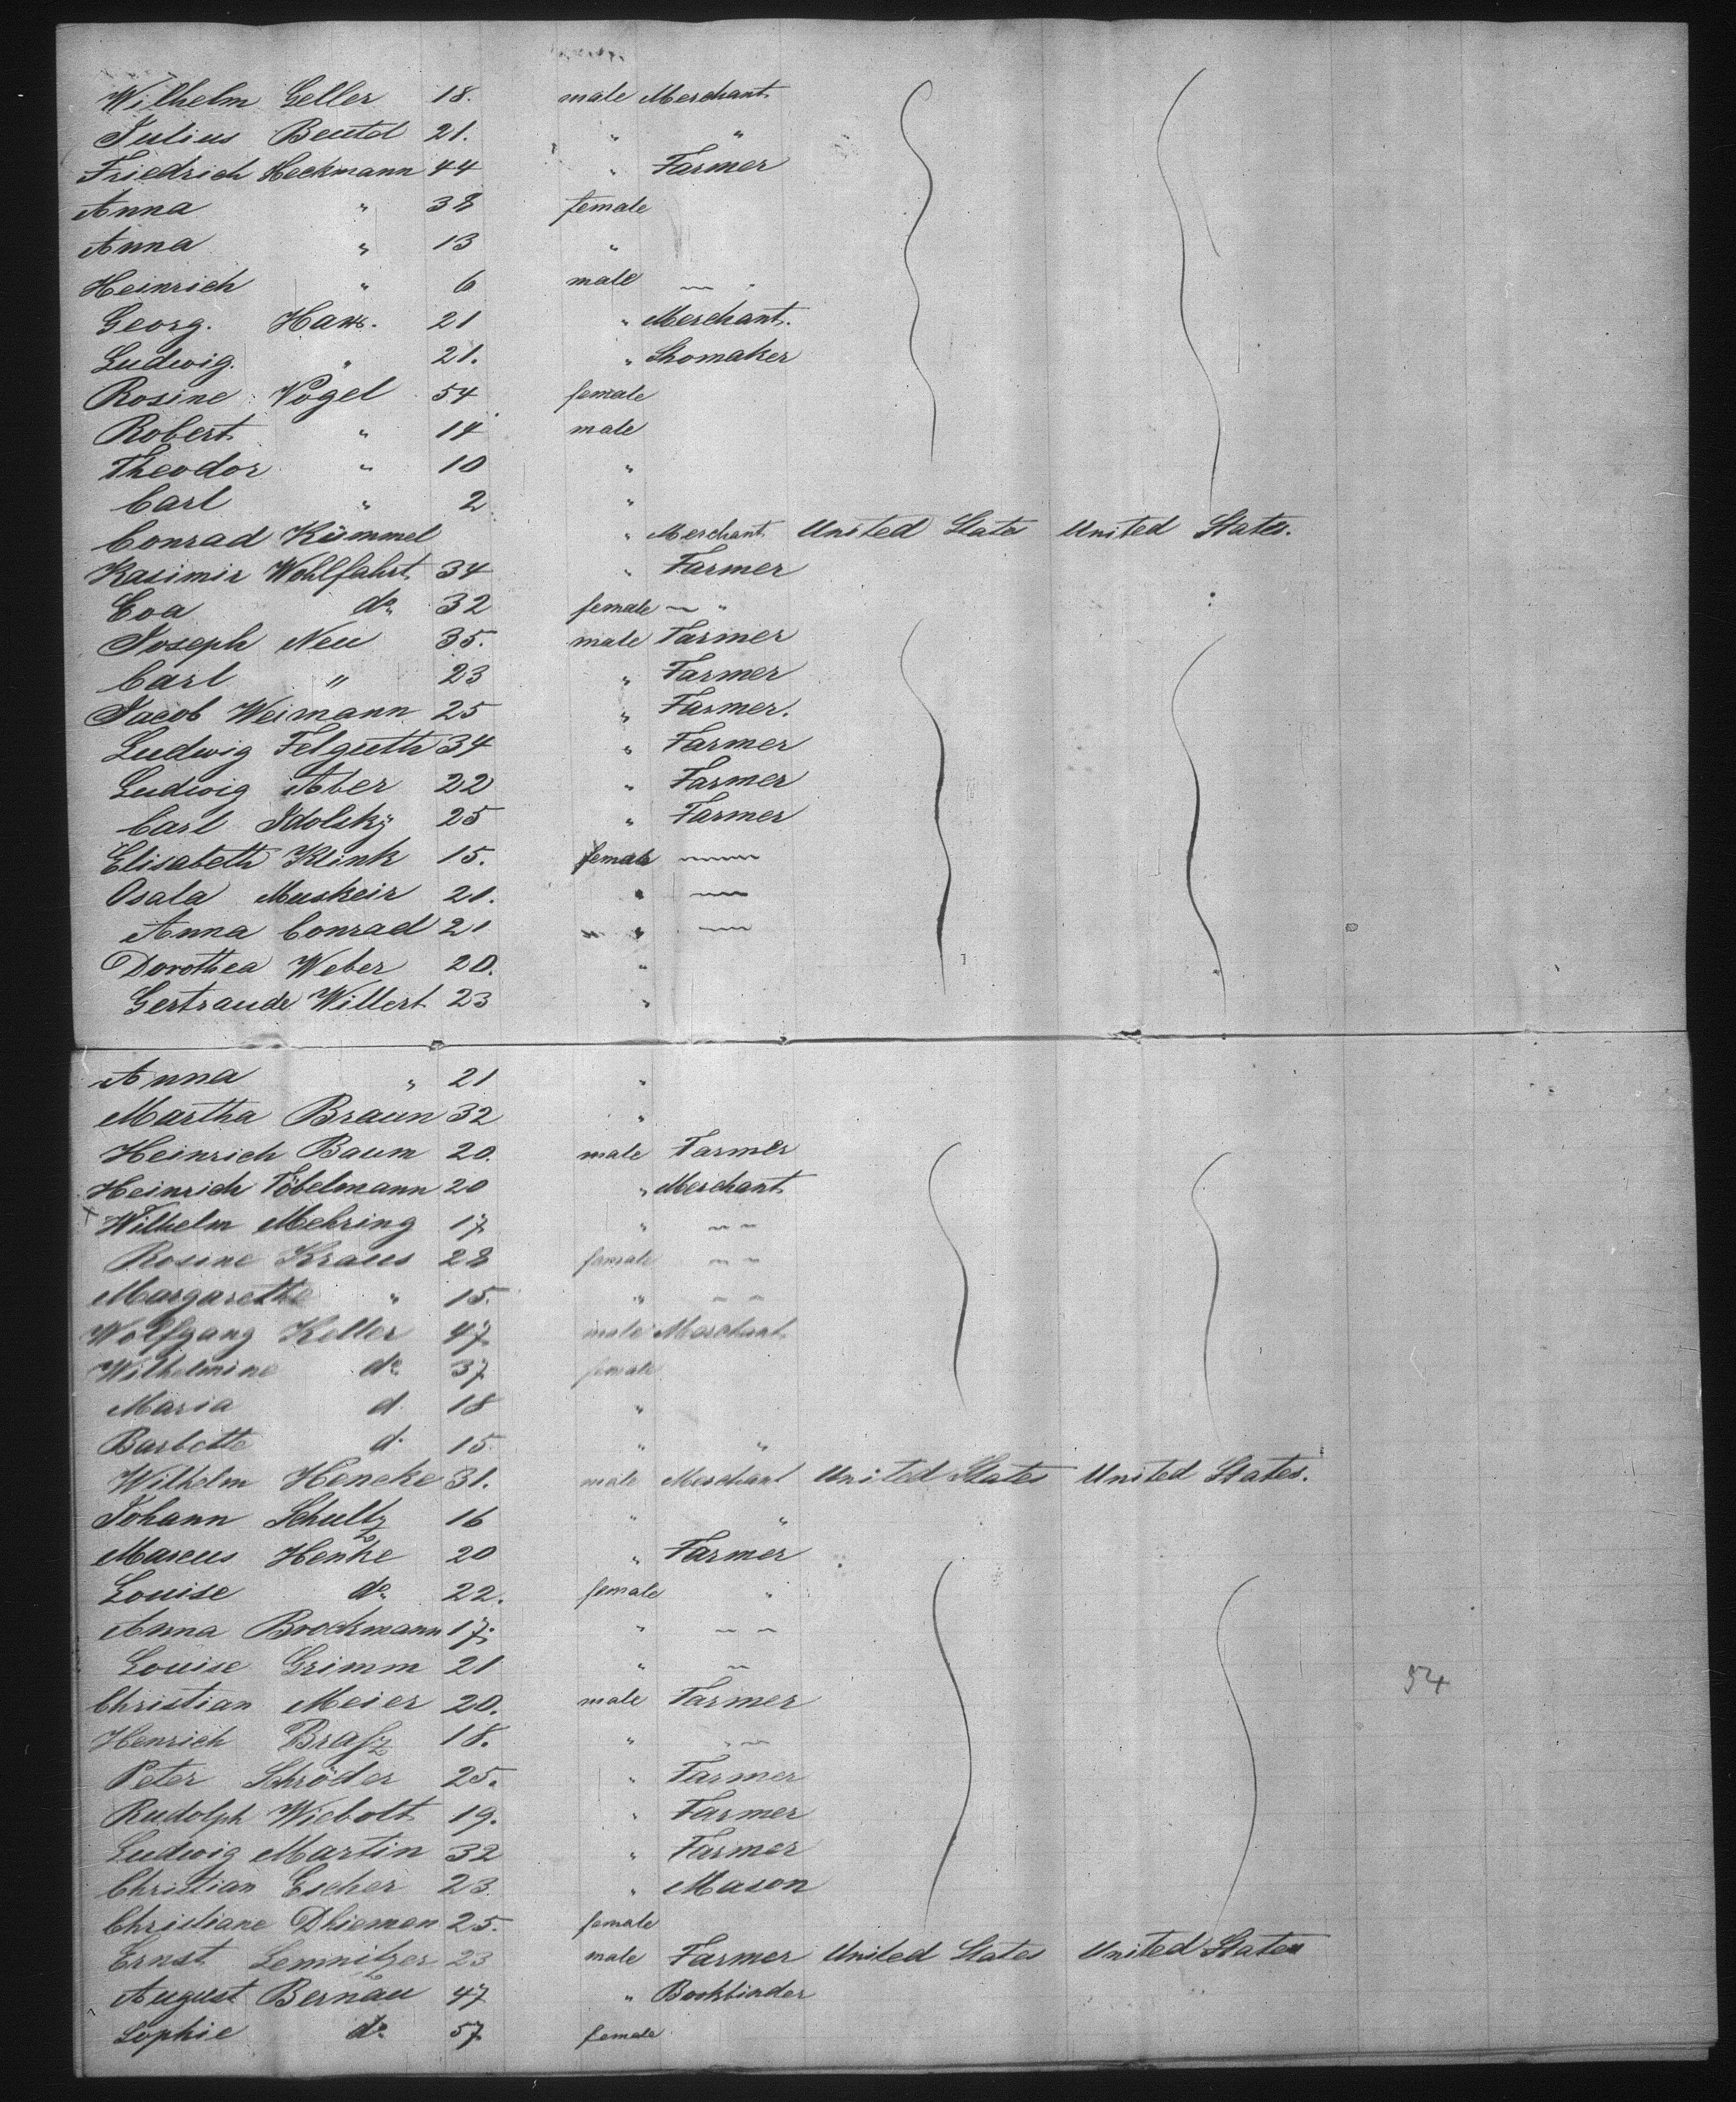 Wilhelm Geller 18. male Merchant
Julius Beutel 21. " "
Friedrich Heckmann 44 " Farmer
Anna " 38 female
Anna " 13 "
Heinrich " 6 male —
Georg. Haas. 21 " Merchant.
Ludwig. " 21. " Shomaker
Rosine Vogel 54 female
Robert " 14 male
Theodor " 10 "
Carl " 2 "
Conrad Kümmel " Merchant United States United States.
Kasimir Wohlfahrt 34 " Farmer
Eva do 32 female — "
Joseph Neu 35. male Farmer
Carl " 23 " Farmer
Jacob Weimann 25 " Farmer.
Ludwig Felguth 34 " Farmer
Ludwig Aber 22 " Farmer
Carl Idolsky 25 " Farmer
Elisabeth Klink 15. female —
Osala Muskeir 21. " —
Anna Conrad 21 " " —
Dorothea Weber 20. "
Gertraude Willert 23 "
Anna " 21 "
Martha Braun 32 "
Heinrich Baum 20. male Farmer
Heinrich Töbelmann 20 " Merchant
x Wilhelm Mehring 17. " — —
Rosine Kraus 28 female — —
Margarethe " 15. " — —
Wolfgang Keller 47. male Merchant
Wilhelmine do 37. female
Maria d 18 "
Barbette d. 15. " "
Wilhelm Heneke 31. male Merchant United States United States.
Johann Schultz 16 " "
Marcus Henke 20 " Farmer
Louise do 22. female "
Anna Brockmann 17. " — —
Louise Grimm 21 " —
54
Christian Meier 20. male Farmer
Henrich 18. " — —
Peter Schröder 25. " Farmer
Rudolph Wiebolt 19. " Farmer
Ludwig Martin 32 " Farmer
Christian Escher 23. " Mason
Christiane Dhieman 25. female
Ernst Lemnitzer 23 male Farmer United States United States
August Bernau 47 " Bookbinder
Sophie do 57. female